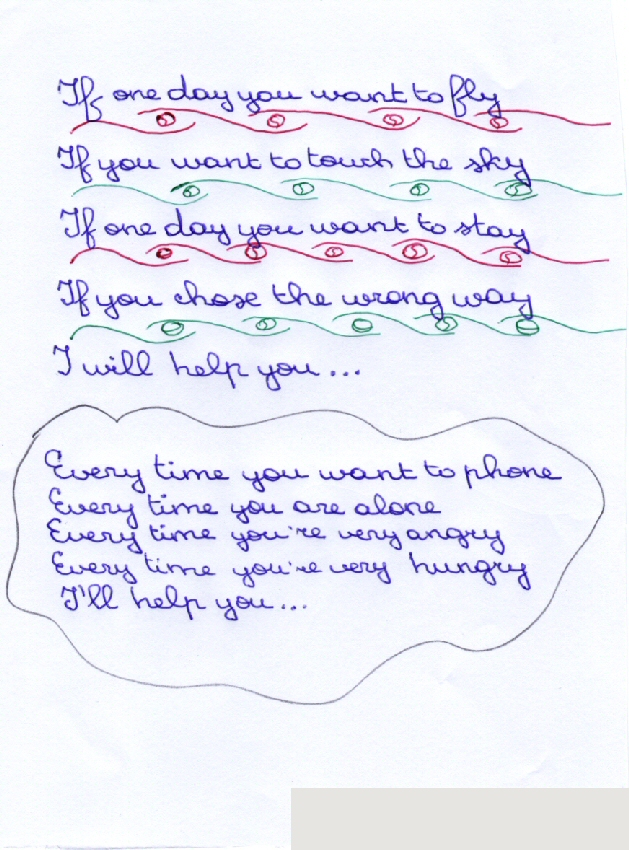 If one day you want to fly
If you want to touch the sky
If one day you want to stay
If you chose the wrong way
I will help you...
Every time you want to phone
Every time you are alone
Every time you're very angry
Every time you're very hungry
I'll help you...